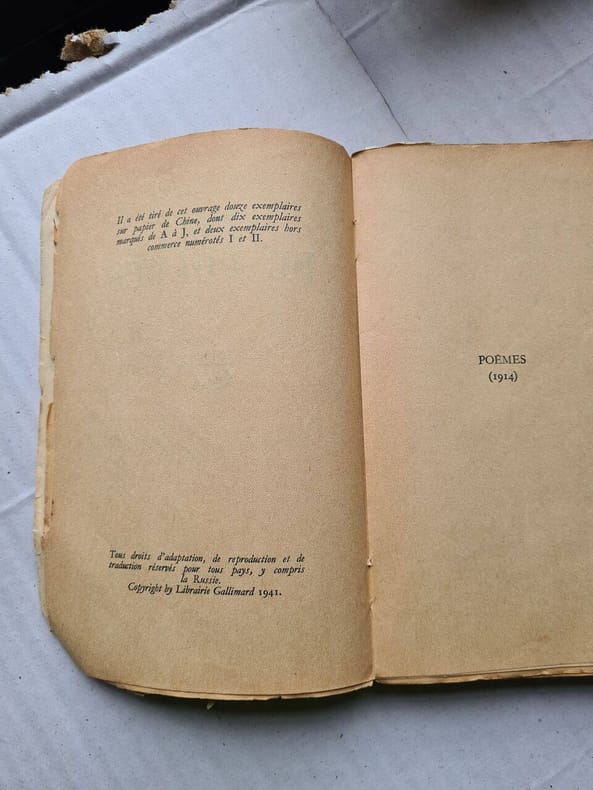 Il a été tiré de cet ouvrage douze exemplaires
sur papier de Chine, dont dix exemplaires
marqués de A à J, et deux exemplaires hors
commerce numérotés I et II.
Tous droits d'adaptation, de reproduction et de
traduction réservés pour tous pays, y compris
la Russie.
Copyright by Librairie Gallimard 1941.
POËMES
(1914)